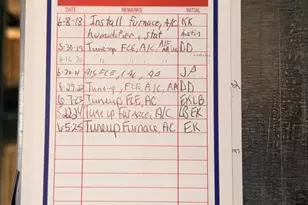 DATE REMARKS INITIAL
6-8-18 Install Furnace, A/C KK
Humidifier, Stat
3-30-19 Tune-up FCE, A/C, DD
FCE, A/C, AA JP
8-27-22 Tune-up, FCE, A/C, AA DD
6-7-23 Tuneup FCE, AC EKLB
5-22-24 Tune up Furnace, A/C LBEK
6-5-25 Tuneup Furnace, AC EK
2
3